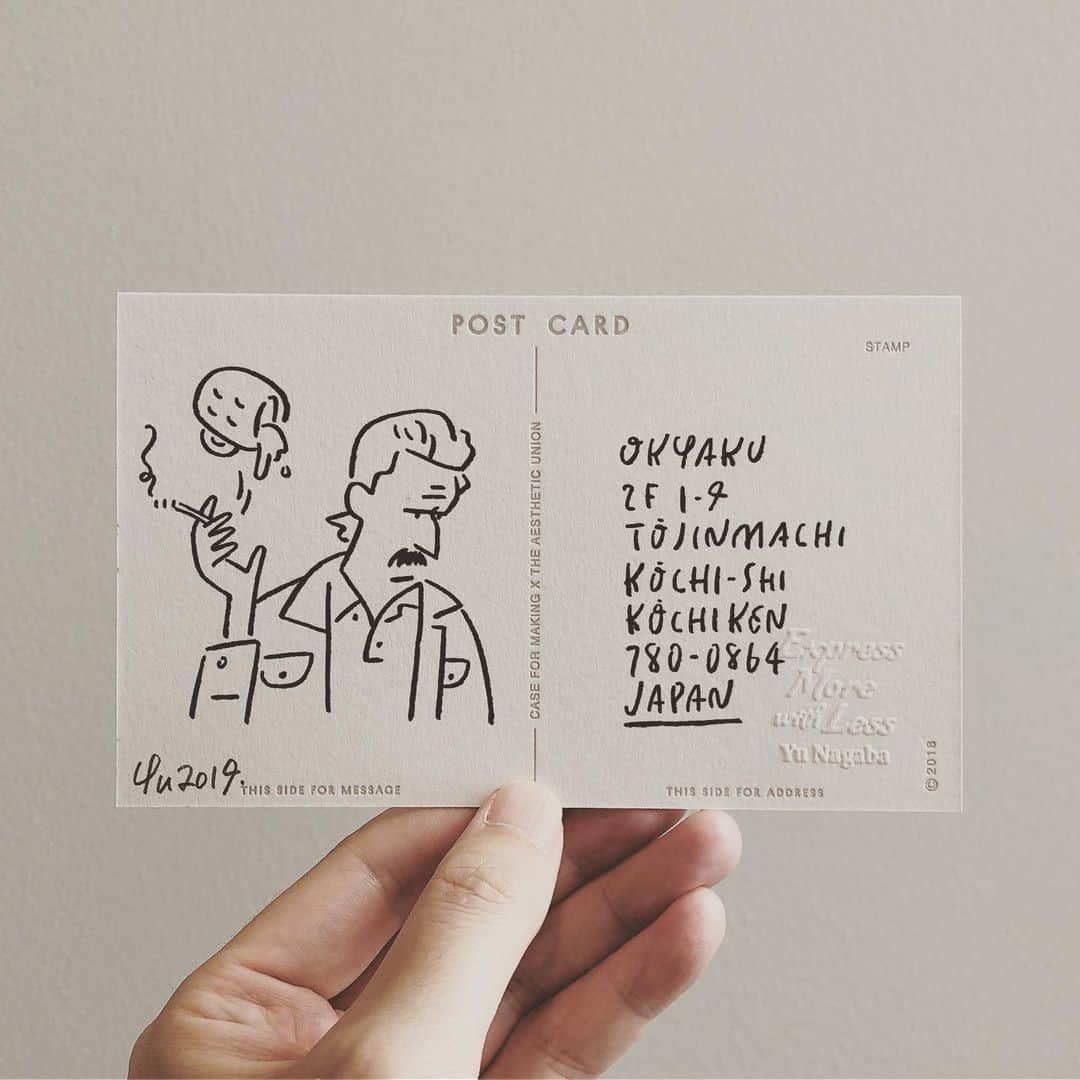 POST CARD
STAMP
CASE FOR MAKING X THE AESTHETIC UNION
OKYAKU
2F 1-9
TŌJINMACHI
KŌCHI-SHI
KŌCHIKEN
780-0864
JAPAN
Express
More
with Less
Yu Nagaba
©2018
Yu 2019.
THIS SIDE FOR MESSAGE
THIS SIDE FOR ADDRESS